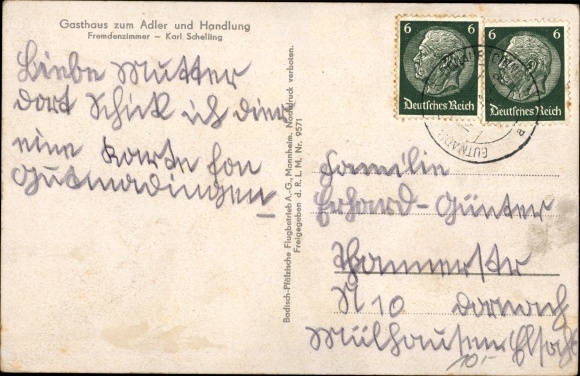 Gasthaus zum Adler und Handlung
Fremdenzimmer – Karl Schelling
Liebe Mutter
dort Schick ich dier
eine Karte fon
Gutmadingen
Badisch-Pfälzische Flugbetrieb A.-G., Mannheim. Nachdruck verboten.
Freigegeben d. R. L. M. Nr. 9571
6 6
Deutsches Reich
6 6
Deutsches Reich
Familie
Erhard-Günter
Thannerstr
N 10 Dornach
Mülhausen Elsaß
10.-